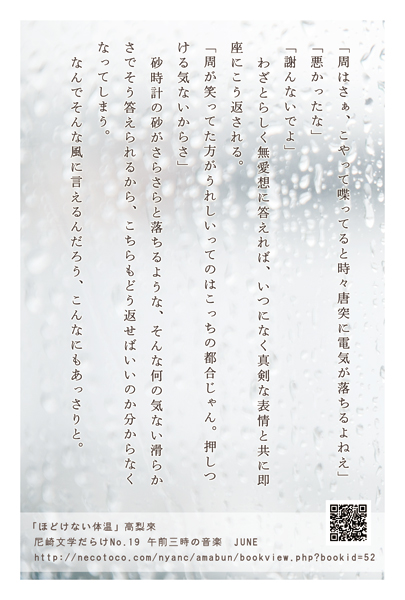 「周はさぁ、こやって喋ってると時々唐突に電気が落ちるよねえ」
「悪かったな」
「謝んないでよ」
わざとらしく無愛想に答えれば、いつになく真剣な表情と共に即
座にこう返される。
「周が笑ってた方がうれしいってのはこっちの都合じゃん。押しつ
ける気ないからさ」
砂時計の砂がさらさらと落ちるような、そんな何の気ない滑らか
さでそう答えられるから、こちらもどう返せばいいのか分からなく
なってしまう。
なんでそんな風に言えるんだろう、こんなにもあっさりと。
「ほどけない体温」高梨來
尼崎文学だらけNo.19 午前三時の音楽 JUNE
http://necotoco.com/nyanc/amabun/bookview.php?bookid=52